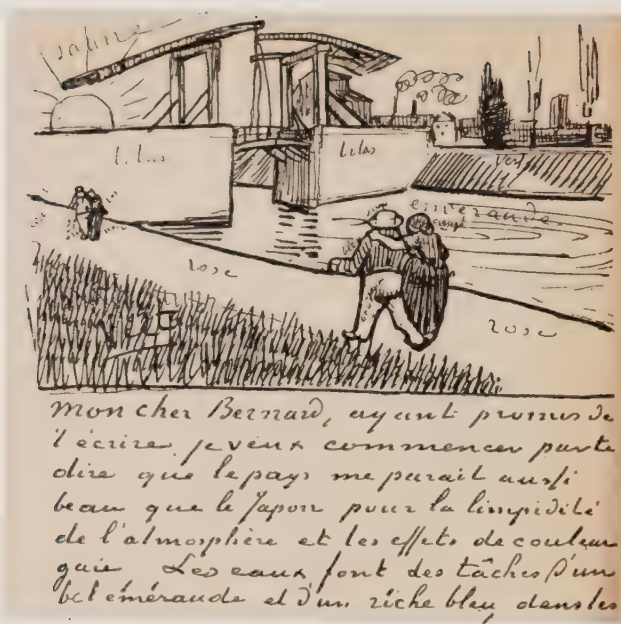 jaune
lilas
lilas
vert
emeraude
rose
rose
mon cher Bernard, ayant promis de
t'écrire je veux commencer par te
dire que le pays me parait aussi
beau que le Japon pour la limpidité
de l'atmosphère et les effets de couleur
gaie Les eaux font des tâches d'un
bel émeraude et d'un riche bleu dans les